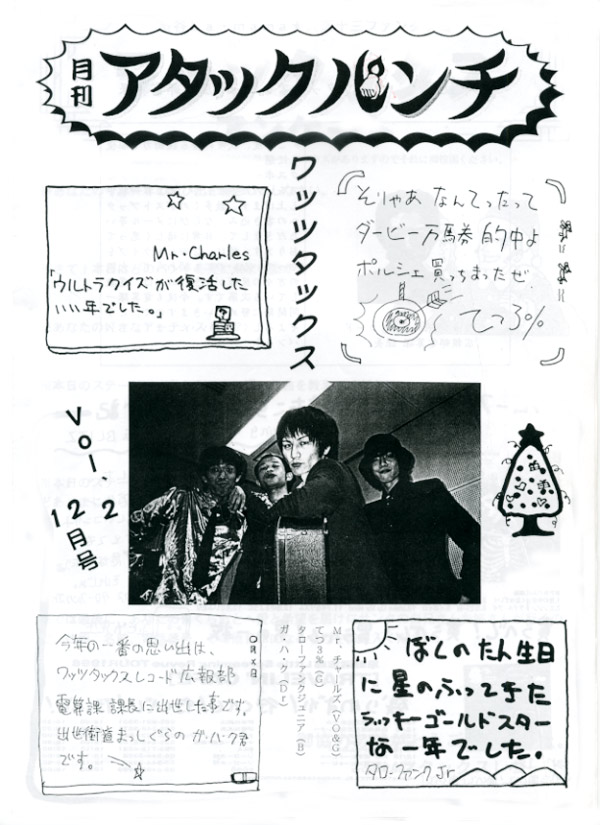 月刊
アタックパンチ
ワッツタックス
Mr・Charles
「ウルトラクイズが復活した
いい年でした。」
そりゃあ なんてったって
ダービー万馬券 的中よ
ポルシェ買っちまったぜ
てつ3%
Vol 2
12月号
今年の一番の思い出は、
ワッツタックスレコード広報部
電算課 課長に出世した事です。
出世街道まっしぐらの ガ・ハ・ク君
です。
○月×日
Mr,チャールズ(VO&G)
てつ3%(G)
タローファンクジュニア(B)
ガ・ハ・ク(Dr)
ぼしのたん生日
に星のふってきた
ラッキーゴールドスター
な一年でした。
タローファンクJr